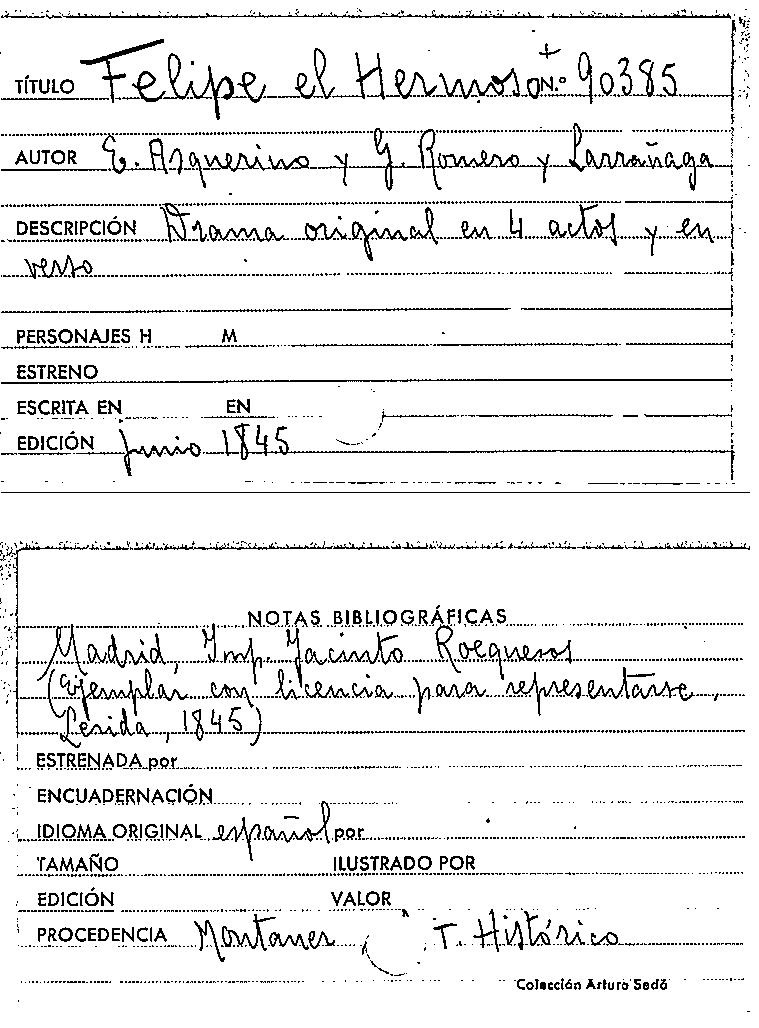 TÍTULO Felipe el Hermoso + N.º 90385
AUTOR E. Asquerino y G. Romero y Larrañaga
DESCRIPCIÓN Drama original en 4 actos y en
verso
PERSONAJES H M
ESTRENO
ESCRITA EN EN
EDICIÓN Junio 1845
NOTAS BIBLIOGRÁFICAS
Madrid, Imp. Jacinto
(Ejemplar con licencia para representarse,
Lerida, 1845)
ESTRENADA por
ENCUADERNACIÓN
IDIOMA ORIGINAL español por
TAMAÑO ILUSTRADO POR
EDICIÓN VALOR
PROCEDENCIA Montaner T. Histórico
Colección Arturo Sedó